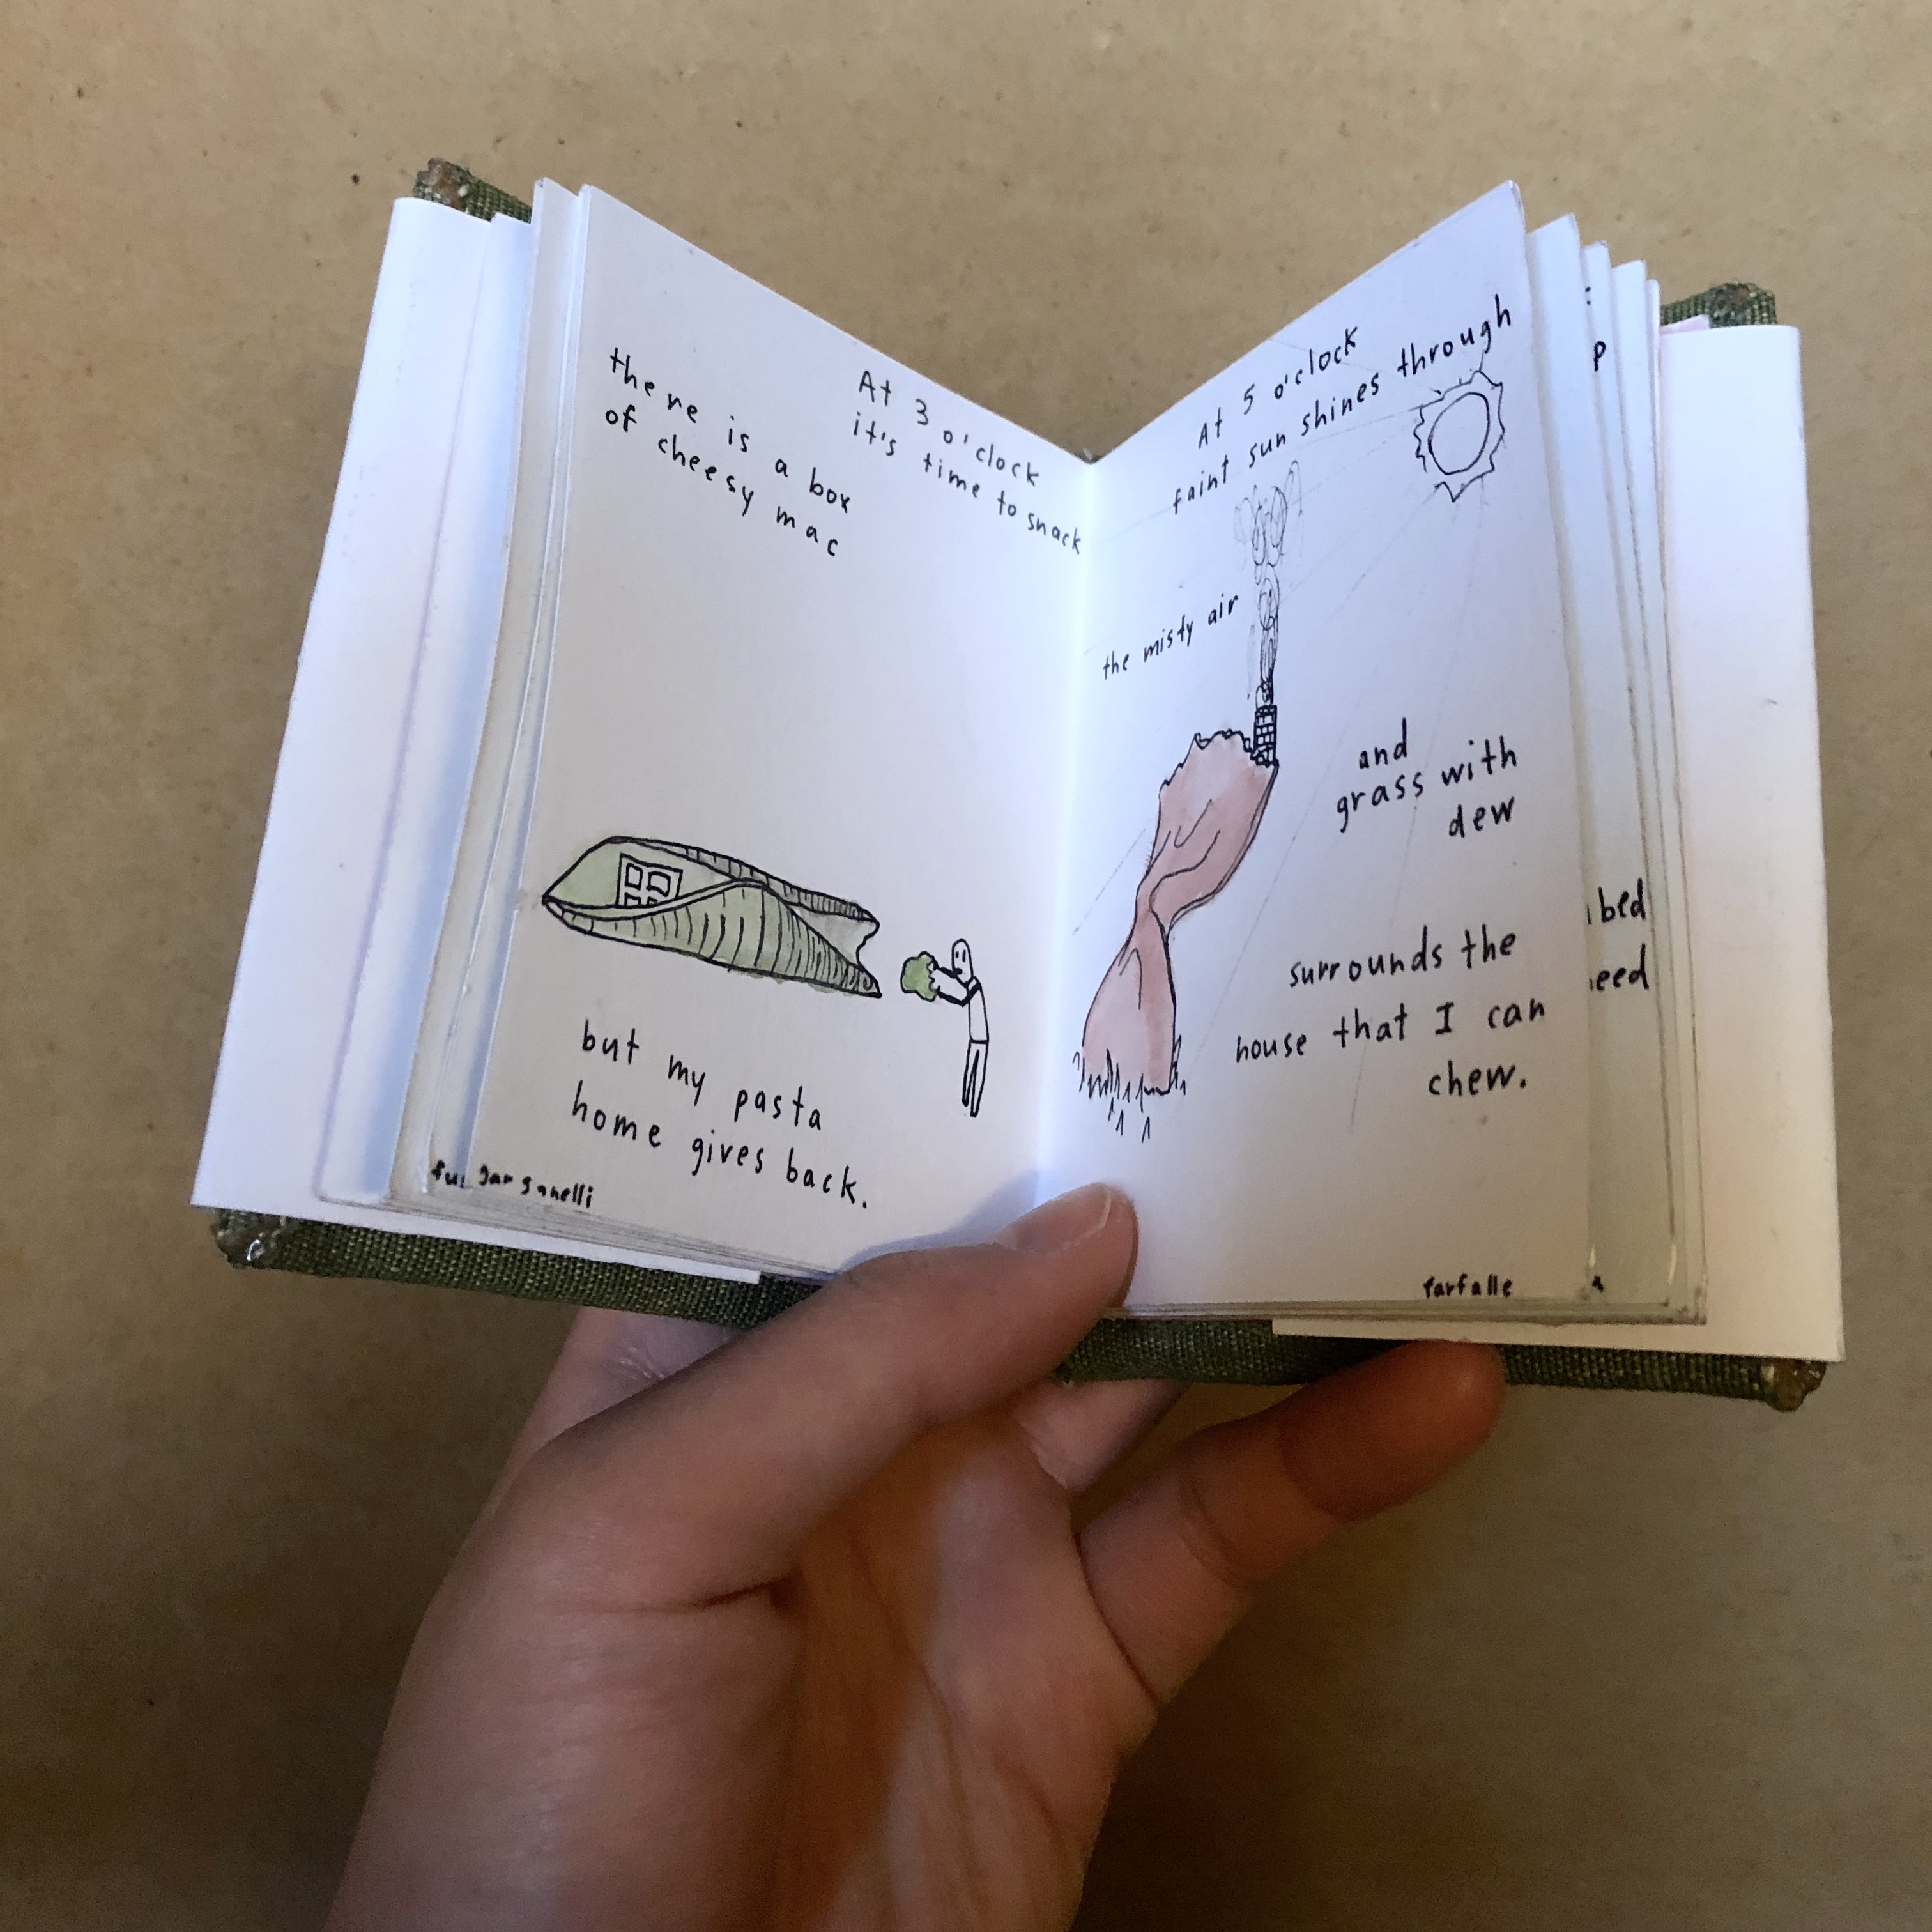 At 3 o'clock
it's time to snack
there is a box
of cheesy mac
but my pasta
home gives back.
garganelli
At 5 o'clock
faint sun shines through
the misty air
and
grass with
dew
surrounds the
house that I can
chew.
farfalle
bed